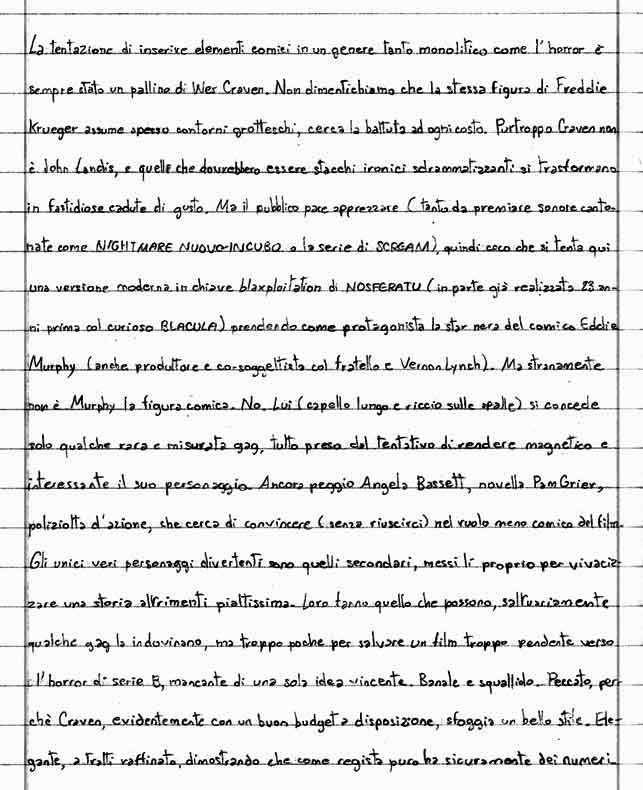 La tentazione di inserire elementi comici in un genere tanto monolitico come l'horror è
sempre stato un pallino di Wes Craven. Non dimentichiamo che la stessa figura di Freddie
Krueger assume spesso contorni grotteschi, cerca la battuta ad ogni costo. Purtroppo Craven non
è John Landis, e quelle che dovrebbero essere stacchi ironici sdrammatizzanti si trasformano
in fastidiose cadute di gusto. Ma il pubblico pare apprezzare (tanto da premiare sonore canto-
nate come NIGHTMARE NUOVO INCUBO o la serie di SCREAM), quindi ecco che si tenta qui
una versione moderna in chiave blaxploitation di NOSFERATU (in parte già realizzata 23 an-
ni prima col curioso BLACULA) prendendo come protagonista la star nera del comico Eddie
Murphy (anche produttore e co-soggettista col fratello e Vernon Lynch). Ma stranamente
non è Murphy la figura comica. No. Lui (capello lungo e riccio sulle spalle) si concede
solo qualche rara e misurata gag, tutto preso dal tentativo di rendere magnetico e
interessante il suo personaggio. Ancora peggio Angela Bassett, novella Pam Grier,
poliziotta d'azione, che cerca di convincere (senza riuscirci) nel ruolo meno comico del film.
Gli unici veri personaggi divertenti sono quelli secondari, messi lì proprio per vivaciz-
zare una storia altrimenti piattissima. Loro fanno quello che possono, saltuariamente
qualche gag la indovinano, ma troppo poche per salvare un film troppo pendente verso
l'horror di serie B, mancante di una sola idea vincente. Banale e squallido. Peccato, per-
chè Craven, evidentemente con un buon budget a disposizione, sfoggia un bello stile. Ele-
gante, a tratti raffinato, dimostrando che come regista puro ha sicuramente dei numeri.